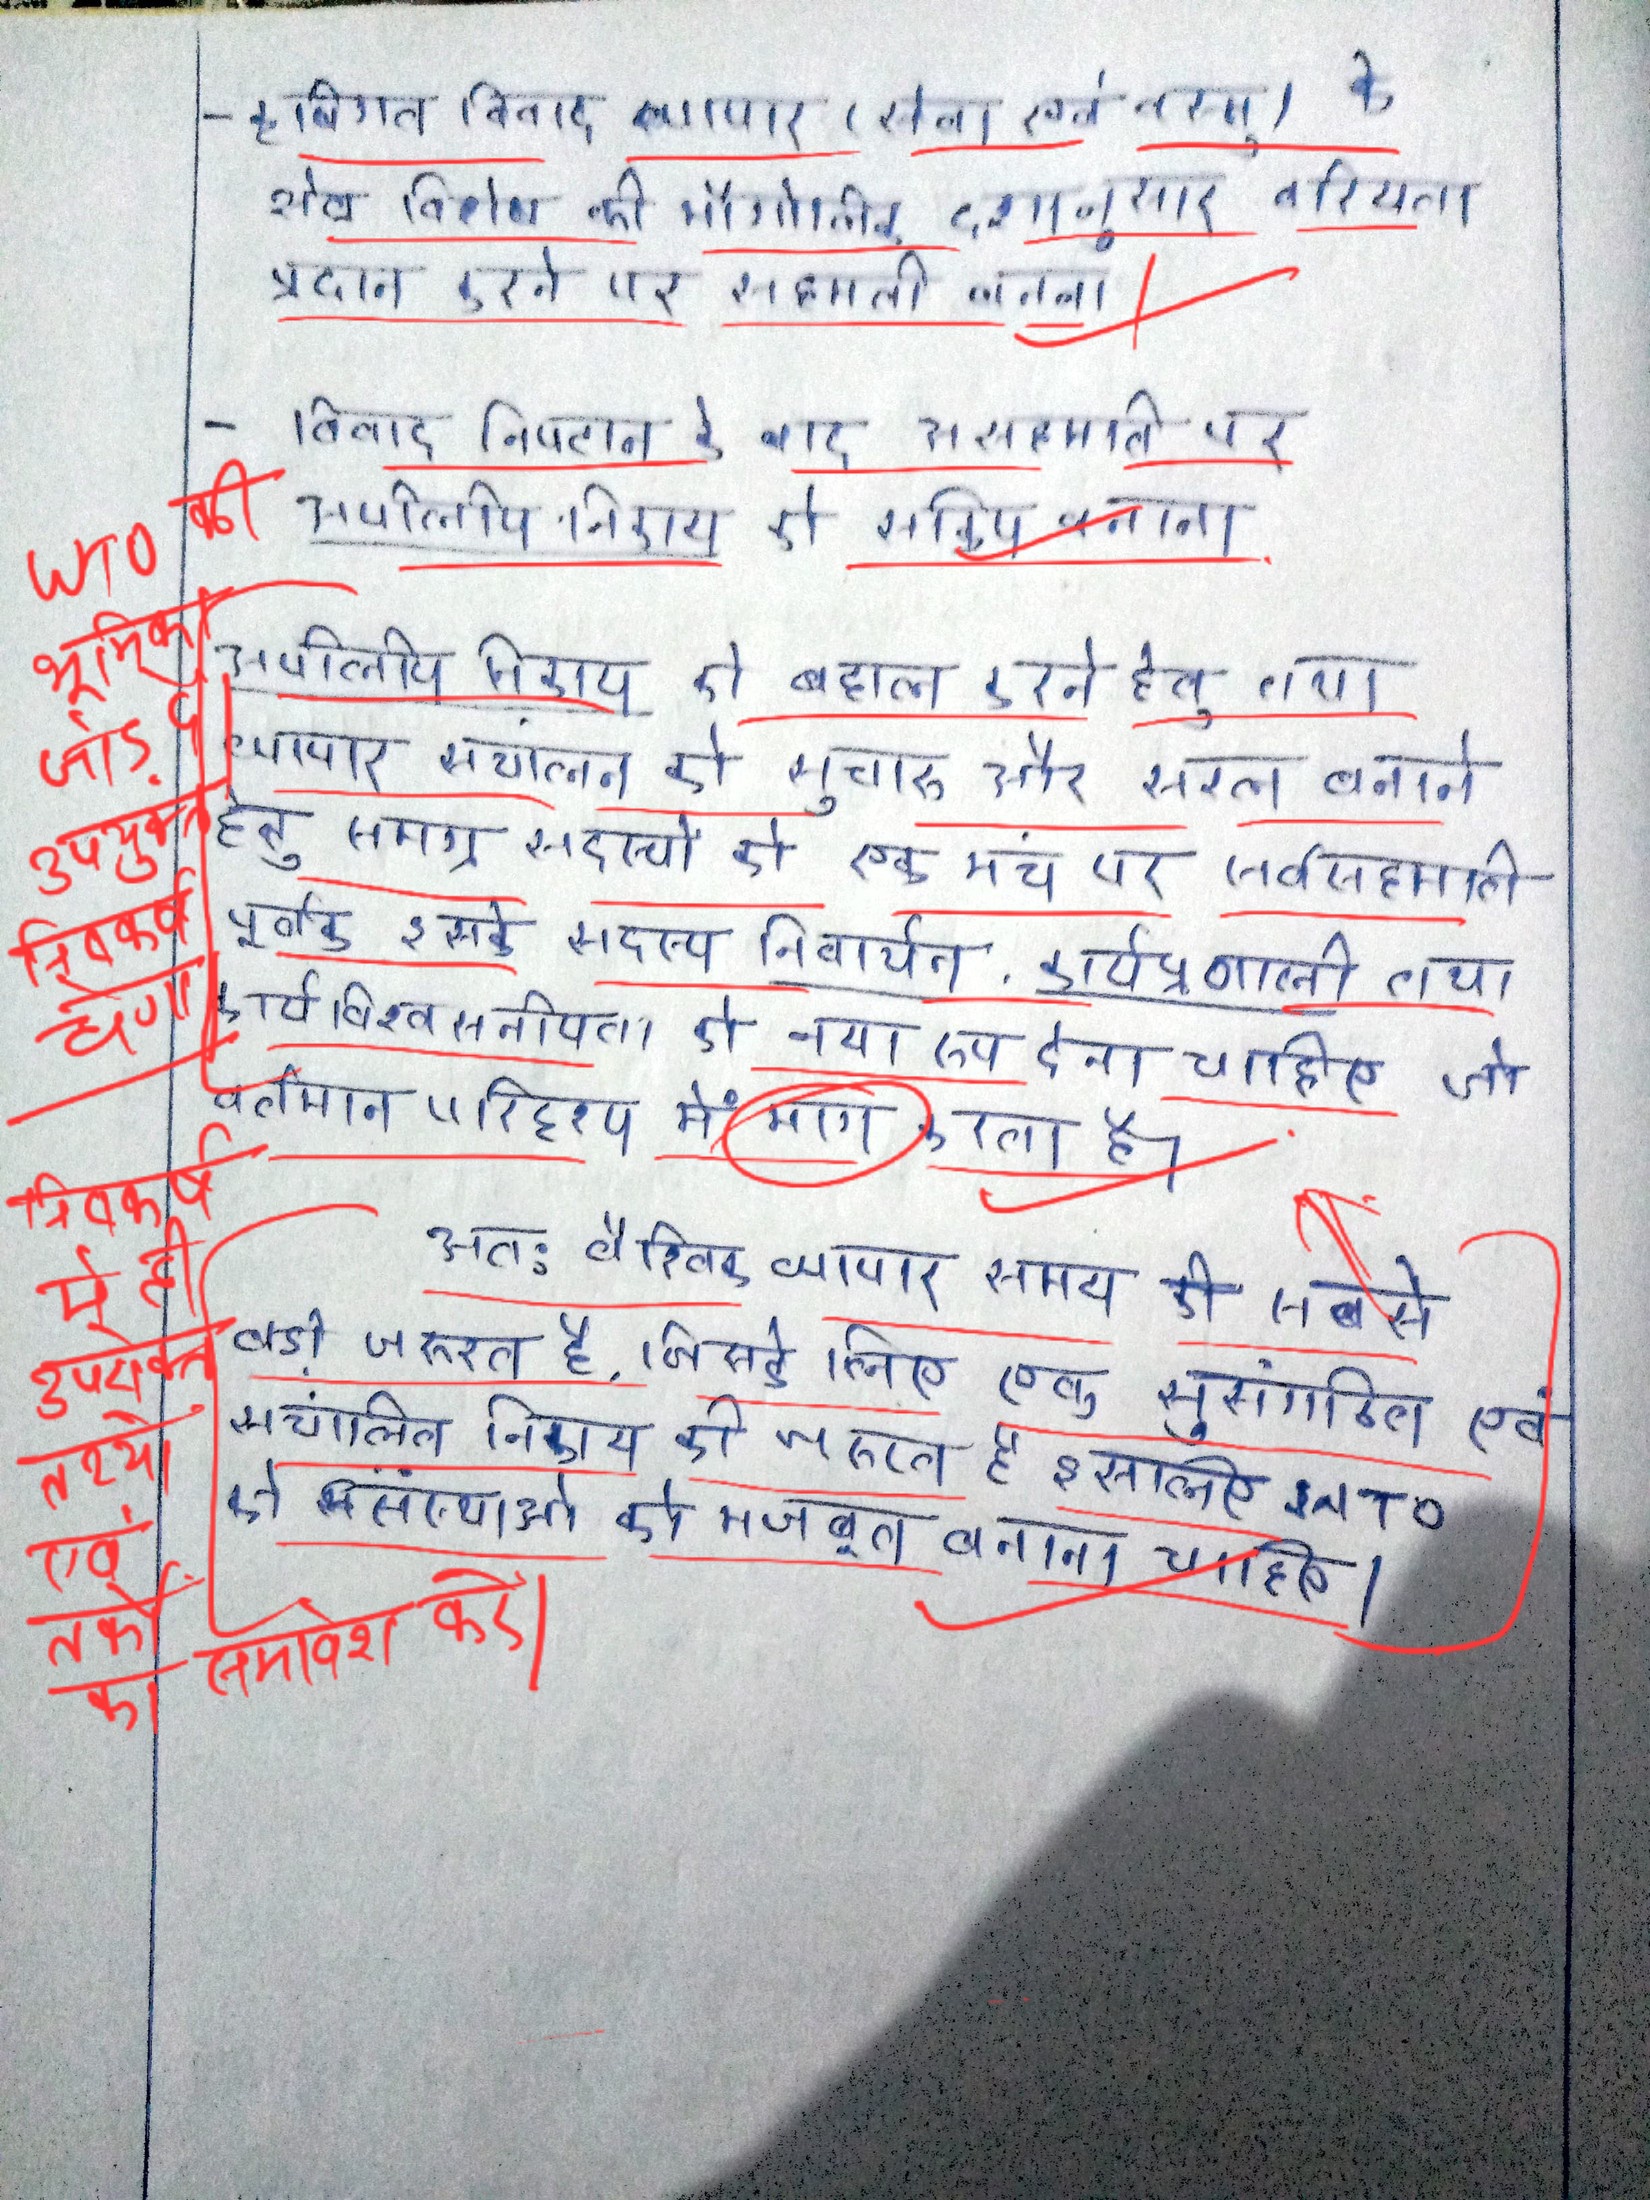 - कृषिगत विवाद व्यापार (सेवा एवं वस्तु) के
क्षेत्र विशेष की भौगोलिक दशानुसार वरियता
प्रदान करने पर सहमती बनना।
- विवाद निपटान के बाद असहमति पर
अपीलीय निकाय को सक्रिय बनाना
अपीलीय निकाय को बहाल करने हेतु तथा
व्यापार सचांलन को सुचारू और सरल बनाने
हेतु समग्र सदस्यों को एक मंच पर सर्वसहमती
पूर्वक इसके सदस्य निवार्चन, कार्यप्रणाली तथा
कार्य विश्वसनीयता को नया रूप देना चाहिए जो
वर्तमान परिदृश्य में मांग करता है।
अतः वैश्विक व्यापार समय की सबसे
बड़ी जरूरत है, जिसके लिए एक सुसंगठित एवं
सचांलित निकाय की जरूरत है इसलिए WTO
को संस्थाओं को मजबूत बनाना चाहिए।
WTO की
भूमिका
जोड़ दें
उपयुक्त
निष्कर्ष
बनेगा
निष्कर्ष
में ही
उपरोक्त
तथ्यों
एवं
तर्को
का समावेश करें।